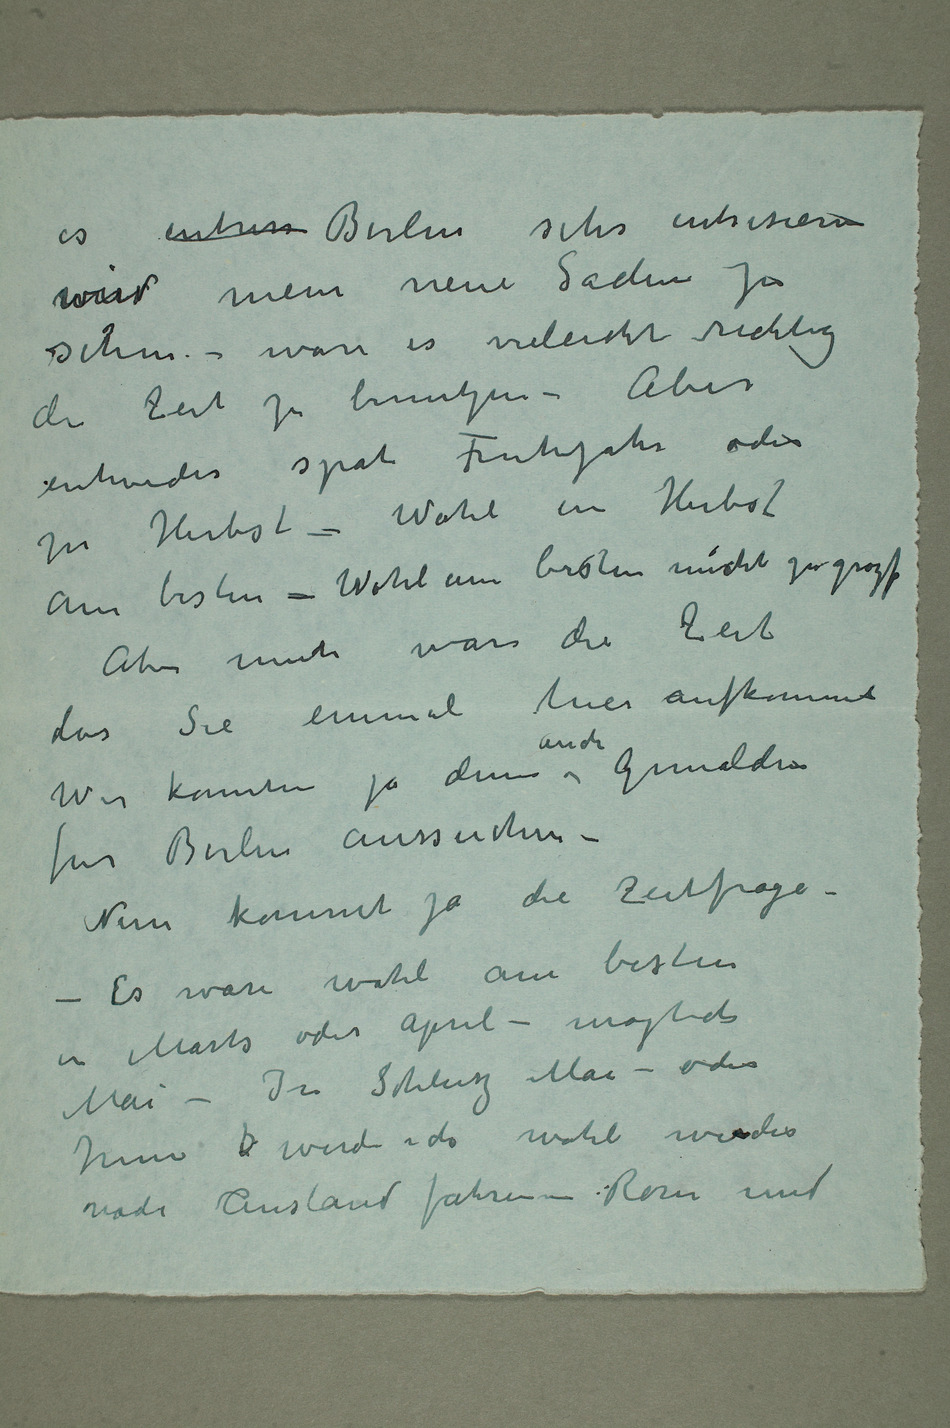 es entress Berlin sehr intresieren
wird mein neue Sachen zu
sehen. – ware es vieleicht richtig
die Zeit zu benutzen – Aber
entweder spät Fruhjahr oder
zu Herbst – Wohl im Herbst
am besten – Wohl am besten nicht zu gross
Aber mich ware die Zeit
das Sie einmal hier aufkommt
Wir konnten ja denn auch Gemälden
fur Berlin aussuchen –
Nun kommt ja die Zeitfrage –
– Es ware wohl am besten
in Marts oder April – moglich
Mai – In Schlusz Mai – oder
Juni werde ich wohl wieder
nach Ausland fahren – Rom und